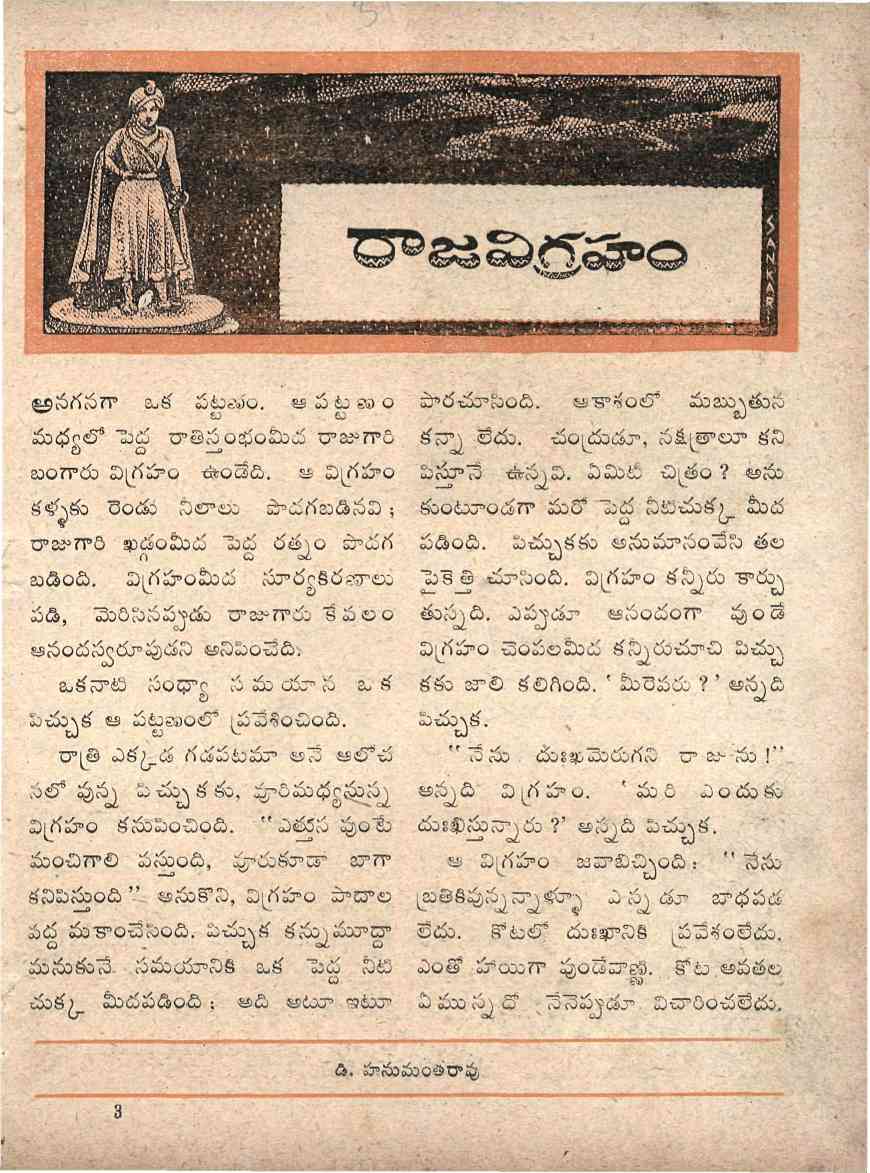 రాజవిగ్రహం
SANKAR
అనగనగా ఒక పట్టణం. ఆ పట్టణం
మధ్యలో పెద్ద రాతిస్తంభంమీద రాజుగారి
బంగారు విగ్రహం ఉండేది. ఆ విగ్రహం
కళ్ళకు రెండు నీలాలు పొదగబడినవి ;
రాజుగారి ఖడ్గంమీద పెద్ద రత్నం పొదగ
బడింది. విగ్రహంమీద సూర్యకిరణాలు
పడి, మెరిసినప్పుడు రాజుగారు కేవలం
ఆనందస్వరూపుడని అనిపించేది.
ఒకనాటి సంధ్యా సమయాన ఒక
పిచ్చుక ఆ పట్టణంలో ప్రవేశించింది.
రాత్రి ఎక్కడ గడపటమా అనే ఆలోచ
నలో వున్న పిచ్చుకకు, వూరిమధ్యనున్న
విగ్రహం కనుపించింది. “ఎత్తున వుంటే
మంచిగాలి వస్తుంది, వూరుకూడా బాగా
కనిపిస్తుంది” అనుకొని, విగ్రహం పాదాల
వద్ద మకాంచేసింది. పిచ్చుక కన్నుమూద్దా
మనుకునే సమయానికి ఒక పెద్ద నీటి
చుక్క మీదపడింది ; అది అటూ ఇటూ
పారచూసింది. ఆకాశంలో మబ్బుతున
కన్నా లేదు. చంద్రుడూ, నక్షత్రాలూ కని
పిస్తూనే ఉన్నవి. ఏమిటీ చిత్రం ? అను
కుంటూండగా మరో పెద్ద నీటిచుక్క మీద
పడింది. పిచ్చుకకు అనుమానంవేసి తల
పైకెత్తి చూసింది. విగ్రహం కన్నీరు కార్చు
తున్నది. ఎప్పుడూ ఆనందంగా వుండే
విగ్రహం చెంపలమీద కన్నీరుచూచి పిచ్చు
కకు జాలి కలిగింది. ‘ మీరెవరు ? ’ అన్నది
పిచ్చుక.
“ నేను దుఃఖమెరుగని రాజును !”
అన్నది విగ్రహం. ‘ మరి ఎందుకు
దుఃఖిస్తున్నారు ?’ అన్నది పిచ్చుక.
ఆ విగ్రహం జవాబిచ్చింది : “ నేను
బ్రతికివున్నన్నాళ్ళూ ఎన్నడూ బాధపడ
లేదు. కోటలో దుఃఖానికి ప్రవేశంలేదు.
ఎంతో హాయిగా వుండేవాణ్ణి. కోట అవతల
ఏమున్నదో నేనెప్పుడూ విచారించలేదు.
డి. హనుమంతరావు
3